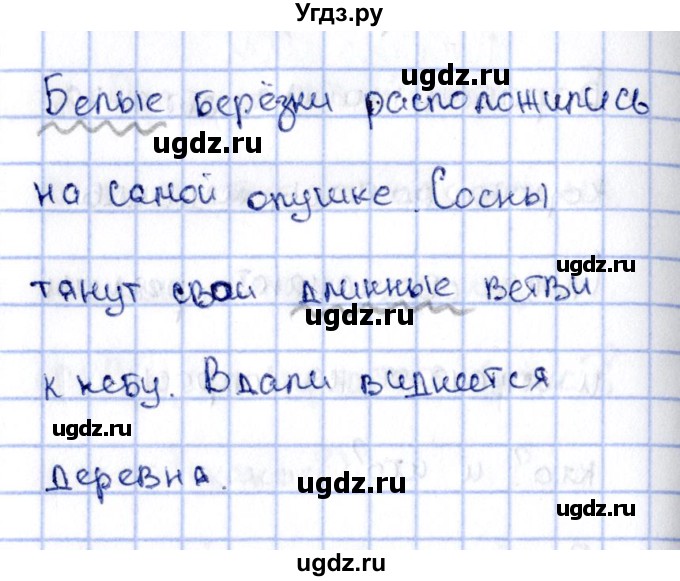 Угдз.ру
ugdz.ru
Белые берёзки расположились
ugdz.ru
на самой опушке. Сосны
ugdz.ru
тянут свои длинные ветви
ugdz.ru
к небу. Вдали виднеется
ugdz.ru
деревня.
ugdz.ru
ugdz.ru
ugdz.ru
ugdz.ru